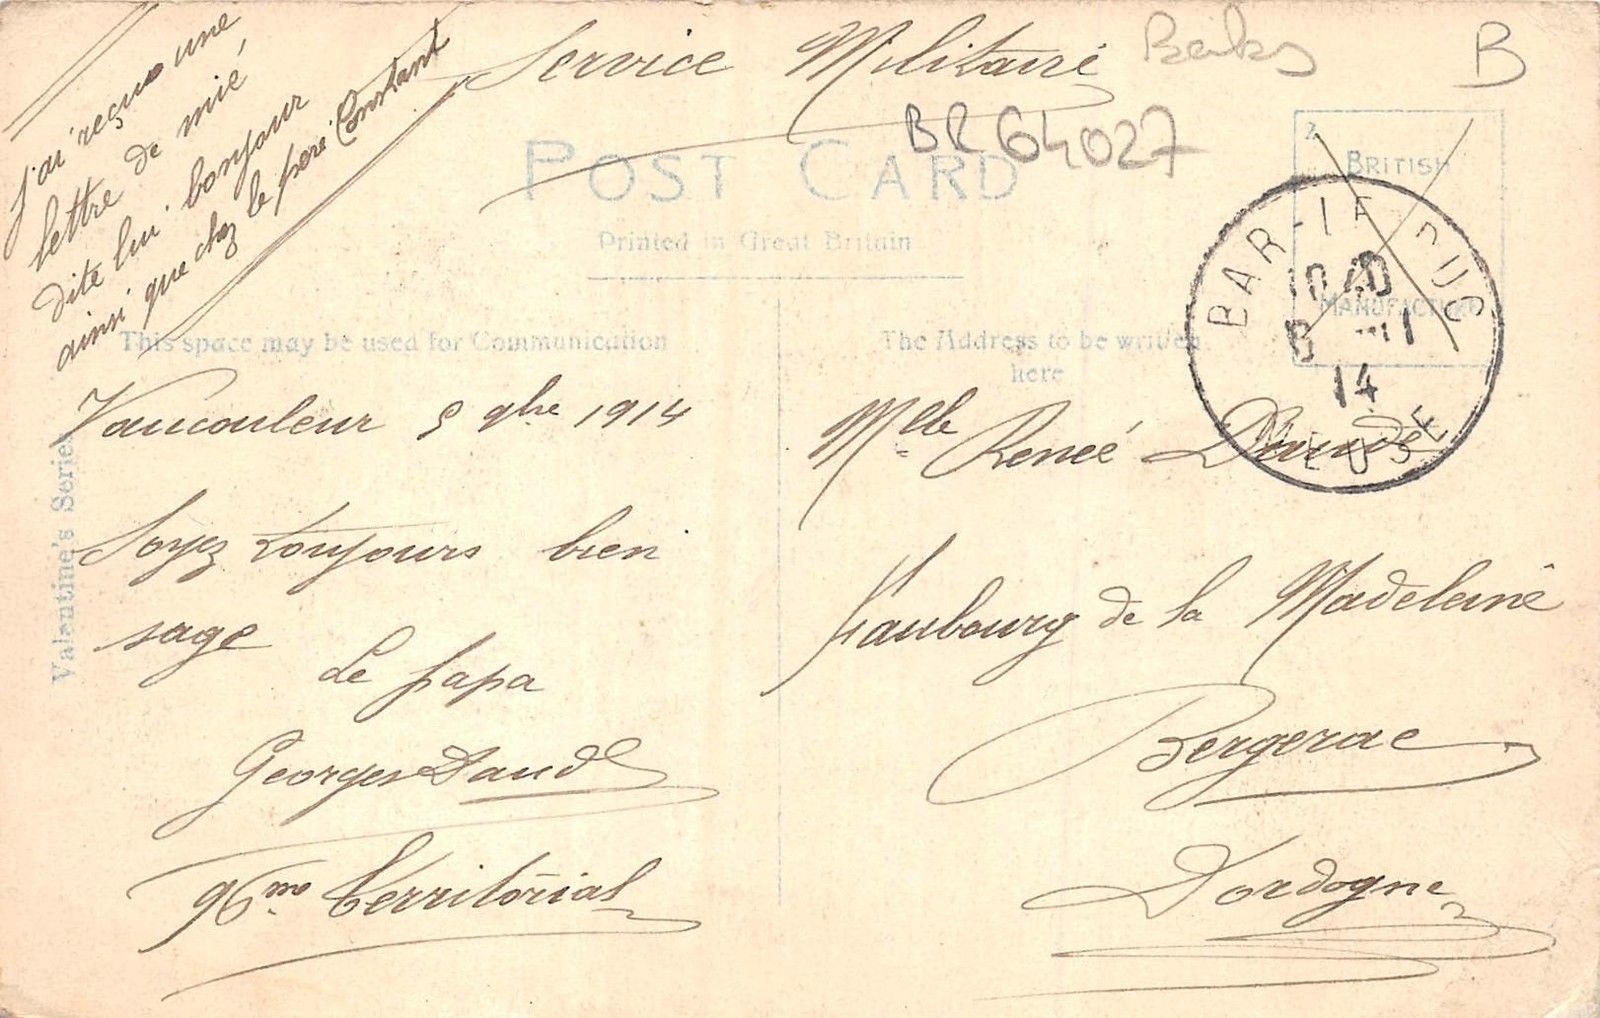 Service Militaire
Banks
B
BR 64027
J'ai reçus une
lettre de mié,
dite lui bonjour
ainsi que chez le frere Constant
POST CARD
Printed in Great Britain
This space may be used for Communication
The Address to be written
here
BRITISH
MANUFACTURE
BAR-LE-DUC
10 40
6 -11
14
MEUSE
Valentine's Series
Vaucouleur 5 9bre 1914
Soyez toujours bien
sage
Le papa
Georges Daude
96me Territorial
Mlle Reneé Daude
Faubourg de la Madeleine
Bergerac
Dordogne